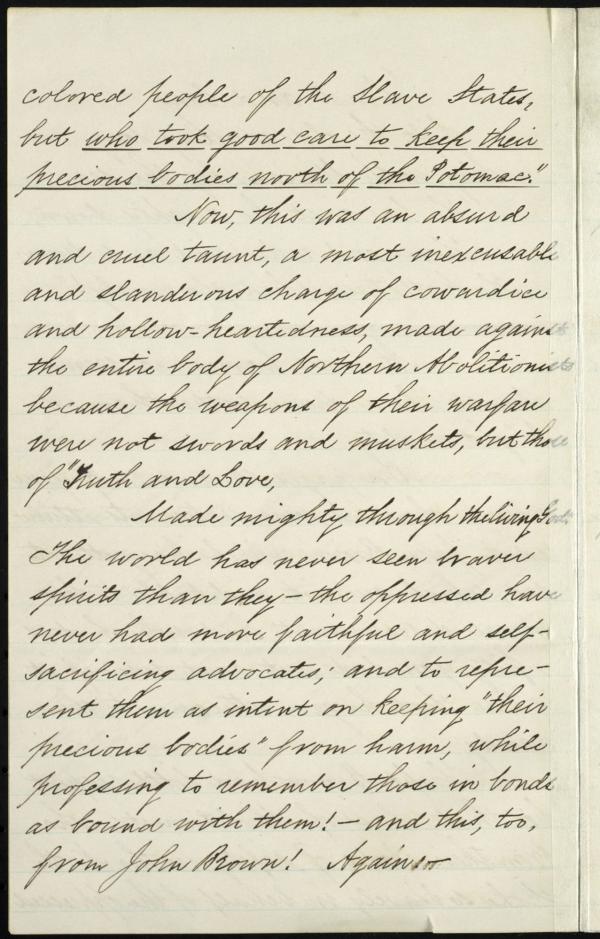 colored people of the Slave States,
but who took good care to keep their
precious bodies north of the Potomac."
Now, this was an absurd
and cruel taunt, a most inexcusable
and slanderous charge of cowardice
and hollow-heartedness, made against
the entire body of Northern Abolitionists
because the weapons of their warfare
were not swords and muskets, but those
of "Truth and Love,
Made mighty through the living God."
The world has never seen braver
spirits than they — the oppressed have
never had more faithful and self-
sacrificing advocates; and to repre-
sent them as intent on keeping "their
precious bodies" from harm, while
professing to remember those in bonds
as bound with them! — and this, too,
from John Brown! Again :—